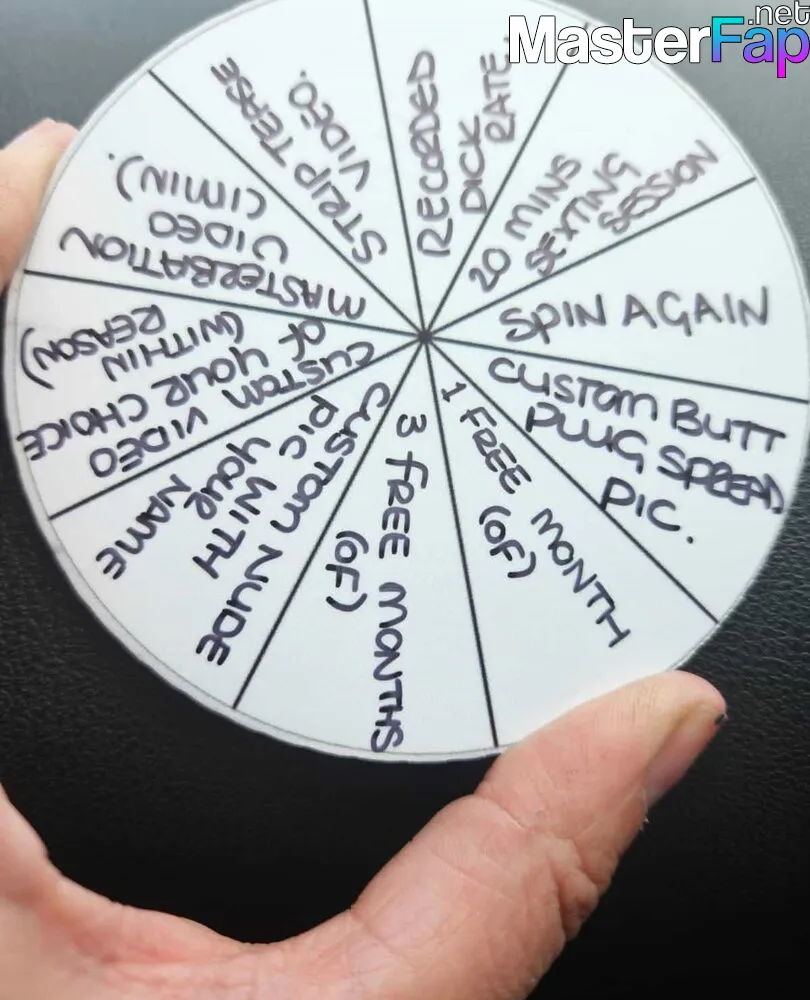 MasterFap
.net
STRIP TEASE
VIDEO.
RECORDED
DICK
RATE.
20 MINS
SEXTING
SESSION
SPIN AGAIN
CUSTOM BUTT
PLUG SPREAD
PIC.
1 FREE MONTH
(OF)
3 FREE MONTHS
(OF)
CUSTOM NUDE
PIC WITH
YOUR
NAME
CUSTOM VIDEO
OF YOUR CHOICE
(WITHIN
REASON)
MASTERBATION
VIDEO
(1MIN).